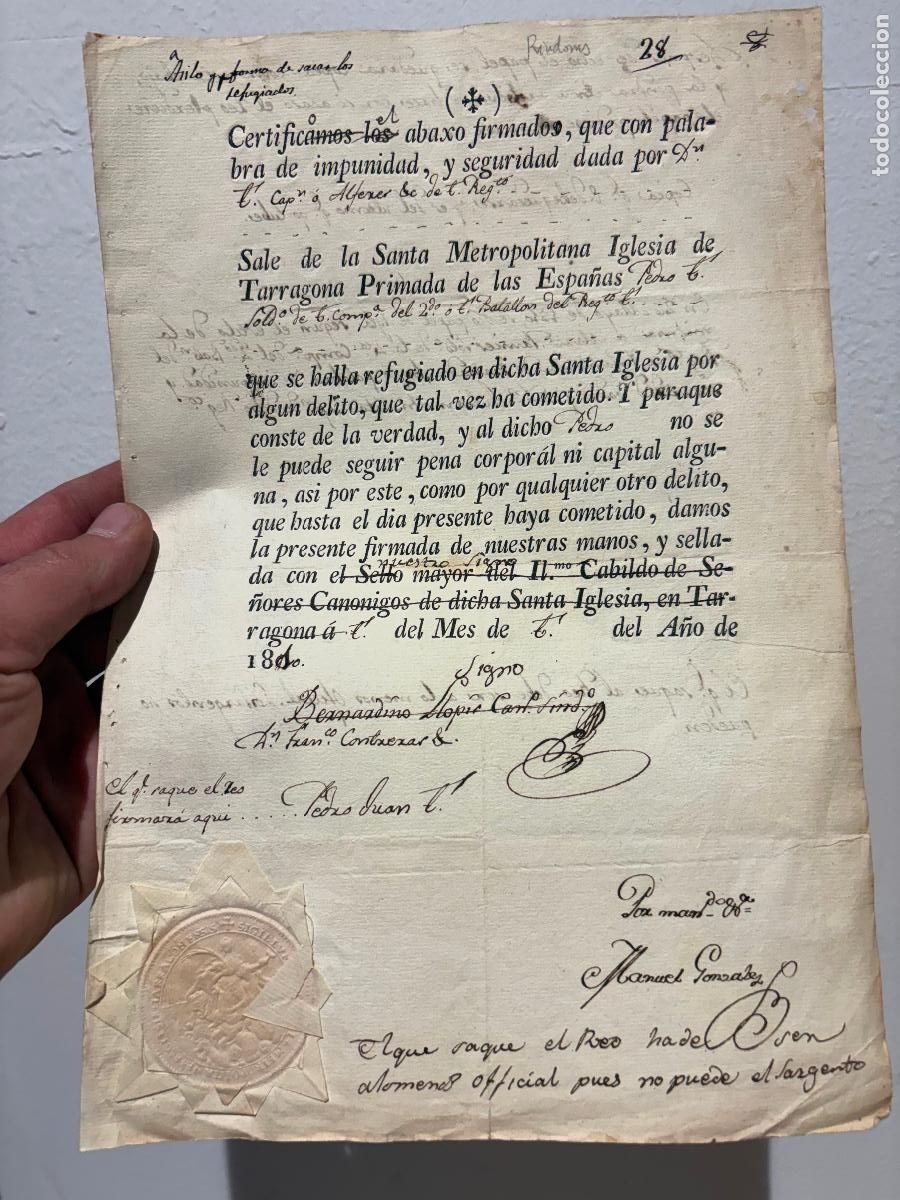 Asilo y forma de sacar los
refugiados
Riudoms
28
8
todocoleccion
Certificamos los abaxo firmados, que con pala-
o el
bra de impunidad, y seguridad dada por Dn
t.l Capn ó Alferez &c de t.l Regto
Sale de la Santa Metropolitana Iglesia de
Tarragona Primada de las Españas Pedro t.l
Soldo de t. Compa del 2do ó t.l Batallon del Regto t.l
que se halla refugiado en dicha Santa Iglesia por
algun delito, que tal vez ha cometido. Y paraque
conste de la verdad, y al dicho Pedro no se
le puede seguir pena corporál ni capital algu-
na, asi por este, como por qualquier otro delito,
que hasta el dia presente haya cometido, damos
la presente firmada de nuestras manos, y sella-
nuestro signo
da con el Sello mayor del Il.mo Cabildo de Se-
ñores Canonigos de dicha Santa Iglesia, en Tar-
ragona á t.l del Mes de t.l del Año de
18
Signo
Bernardino Llopis Can.e Sindo
Dn Franco Contreras &.
El q.e saque el reo
firmará aqui ..... Pedro Juan t.l
SIGILLU
Por mando
Manuel Gonzalez
El que saque el Reo ha de ser
alomenos Official pues no puede el Sargento